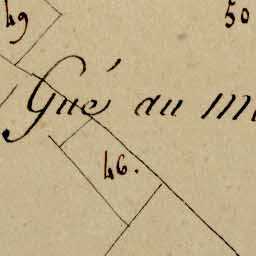 49
50
Gué du M
46.